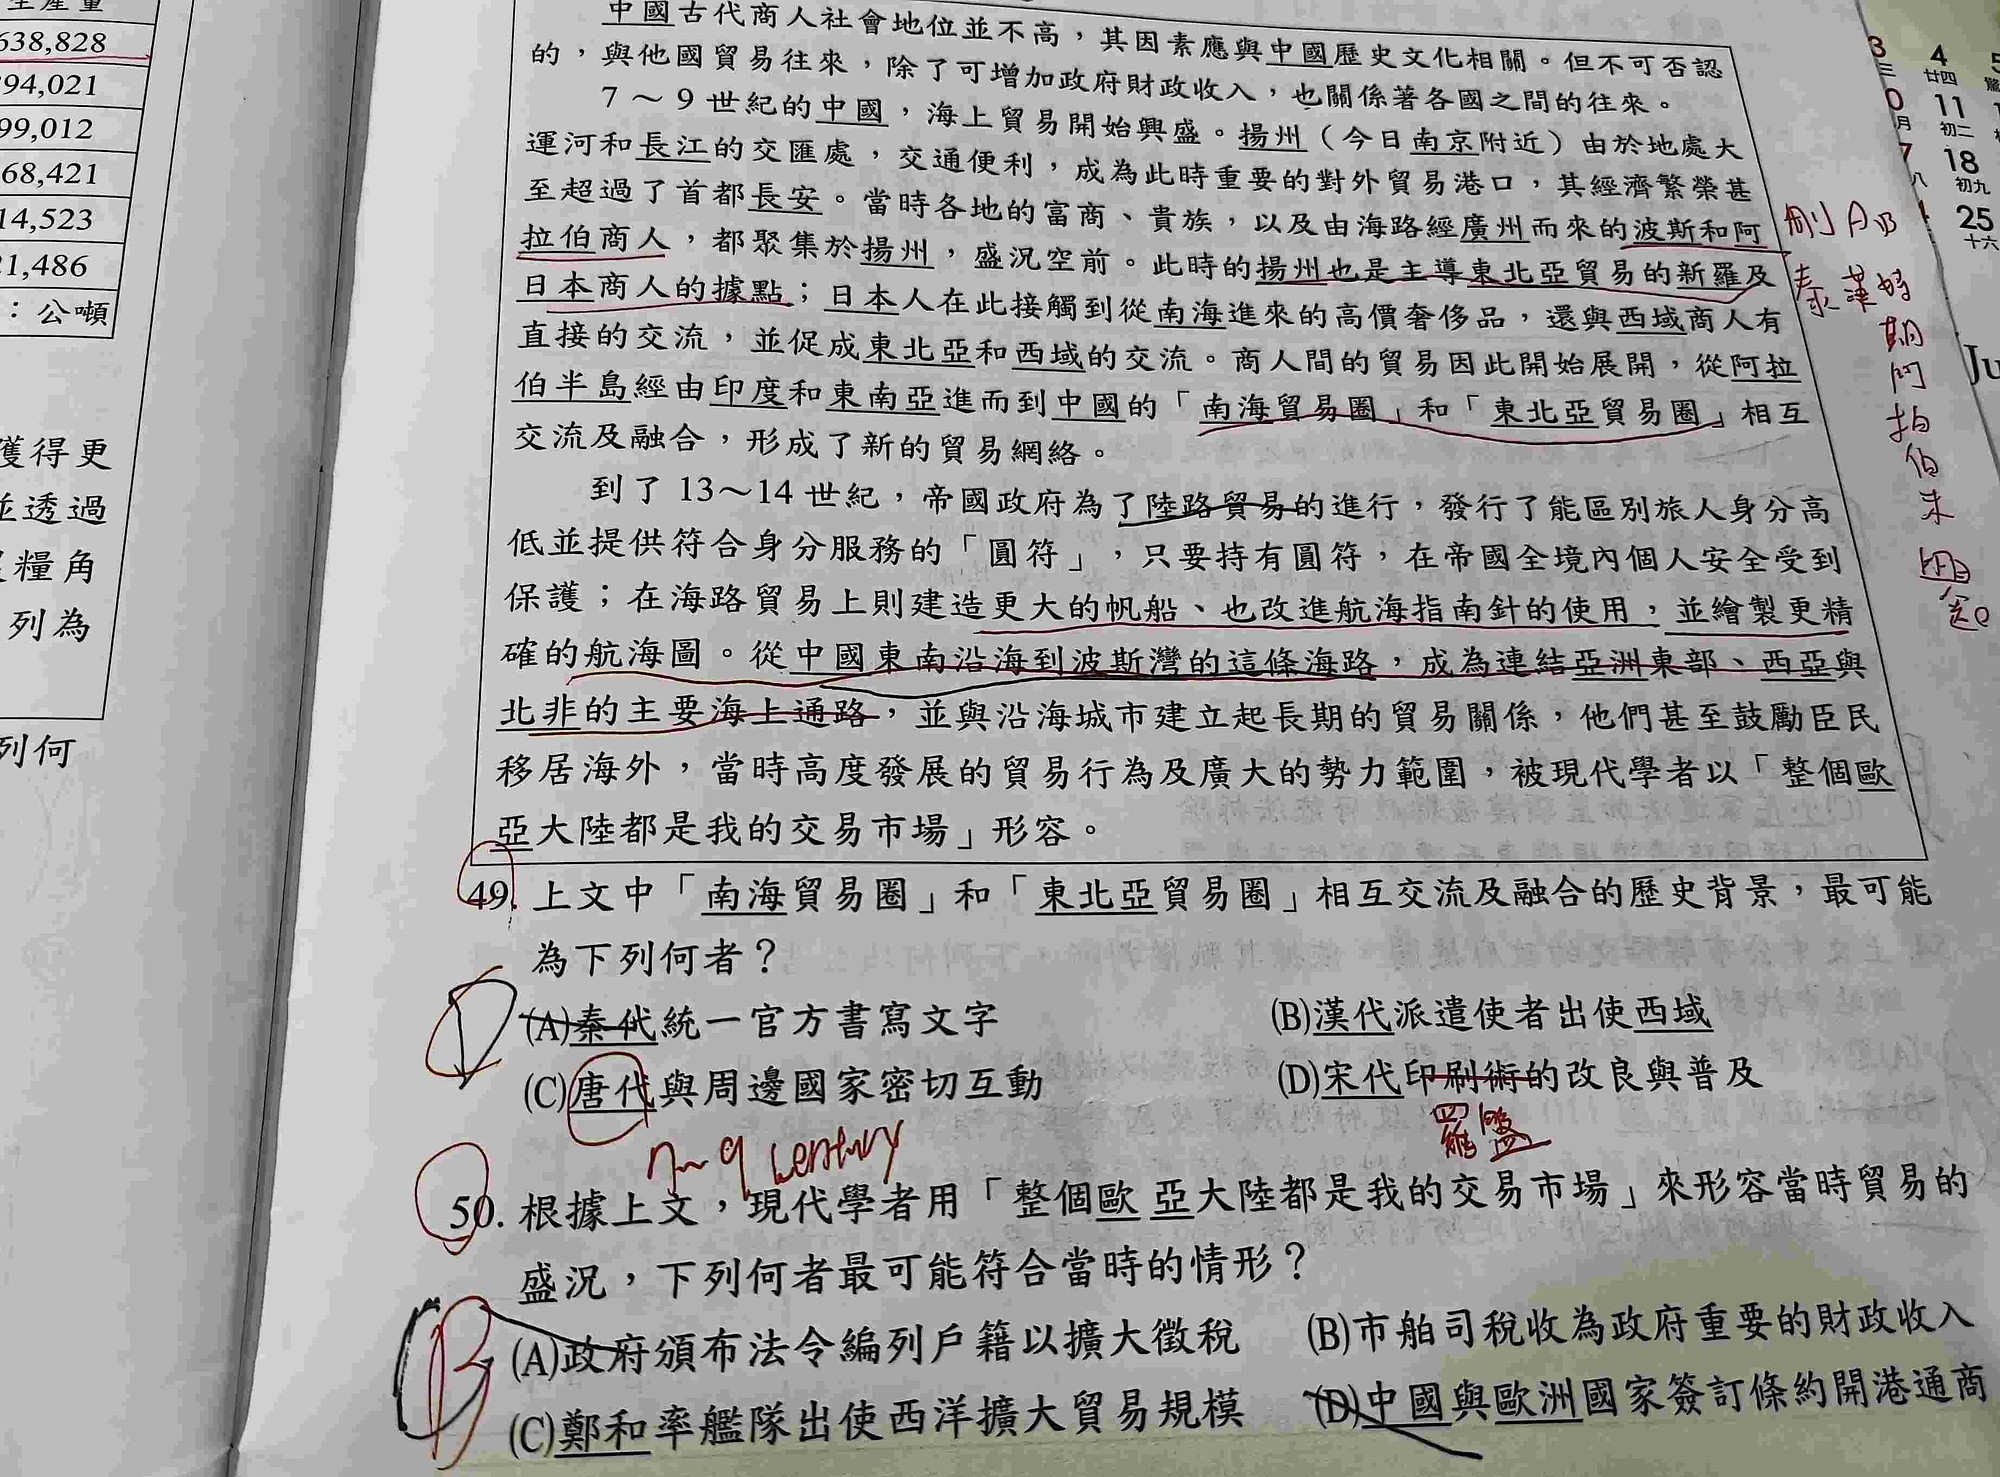 生產量
638,828
94,021
99,012
68,421
14,523
21,486
：公噸
獲得更
並透過
糧角
列為
列何
中國古代商人社會地位並不高，其因素應與中國歷史文化相關。但不可否認
的，與他國貿易往來，除了可增加政府財政收入，也關係著各國之間的往來。
7～9世紀的中國，海上貿易開始興盛。揚州（今日南京附近）由於地處大
運河和長江的交匯處，交通便利，成為此時重要的對外貿易港口，其經濟繁榮甚
至超過了首都長安。當時各地的富商、貴族，以及由海路經廣州而來的波斯和阿
拉伯商人，都聚集於揚州，盛況空前。此時的揚州也是主導東北亞貿易的新羅及
日本商人的據點；日本人在此接觸到從南海進來的高價奢侈品，還與西域商人有
直接的交流，並促成東北亞和西域的交流。商人間的貿易因此開始展開，從阿拉
伯半島經由印度和東南亞進而到中國的「南海貿易圈」和「東北亞貿易圈」相互
交流及融合，形成了新的貿易網絡。
到了13～14世紀，帝國政府為了陸路貿易的進行，發行了能區別旅人身分高
低並提供符合身分服務的「圓符」，只要持有圓符，在帝國全境內個人安全受到
保護；在海路貿易上則建造更大的帆船、也改進航海指南針的使用，並繪製更精
確的航海圖。從中國東南沿海到波斯灣的這條海路，成為連結亞洲東部、西亞與
北非的主要海上通路，並與沿海城市建立起長期的貿易關係，他們甚至鼓勵臣民
移居海外，當時高度發展的貿易行為及廣大的勢力範圍，被現代學者以「整個歐
亞大陸都是我的交易市場」形容。
刪AB
秦漢時
期阿
拍
伯未
崛
起。
49.上文中「南海貿易圈」和「東北亞貿易圈」相互交流及融合的歷史背景，最可能
為下列何者？
(A)秦代統一官方書寫文字 (B)漢代派遣使者出使西域
(C)唐代與周邊國家密切互動 (D)宋代印刷術的改良與普及
7~9 century
羅盤
50.根據上文，現代學者用「整個歐亞大陸都是我的交易市場」來形容當時貿易的
盛況，下列何者最可能符合當時的情形？
B
(A)政府頒布法令編列戶籍以擴大徵稅 (B)市舶司稅收為政府重要的財政收入
(C)鄭和率艦隊出使西洋擴大貿易規模 (D)中國與歐洲國家簽訂條約開港通商
3 4 5
三 廿四 驚
10 11
月 初二
17 18
八 初九
25
十六
Ju